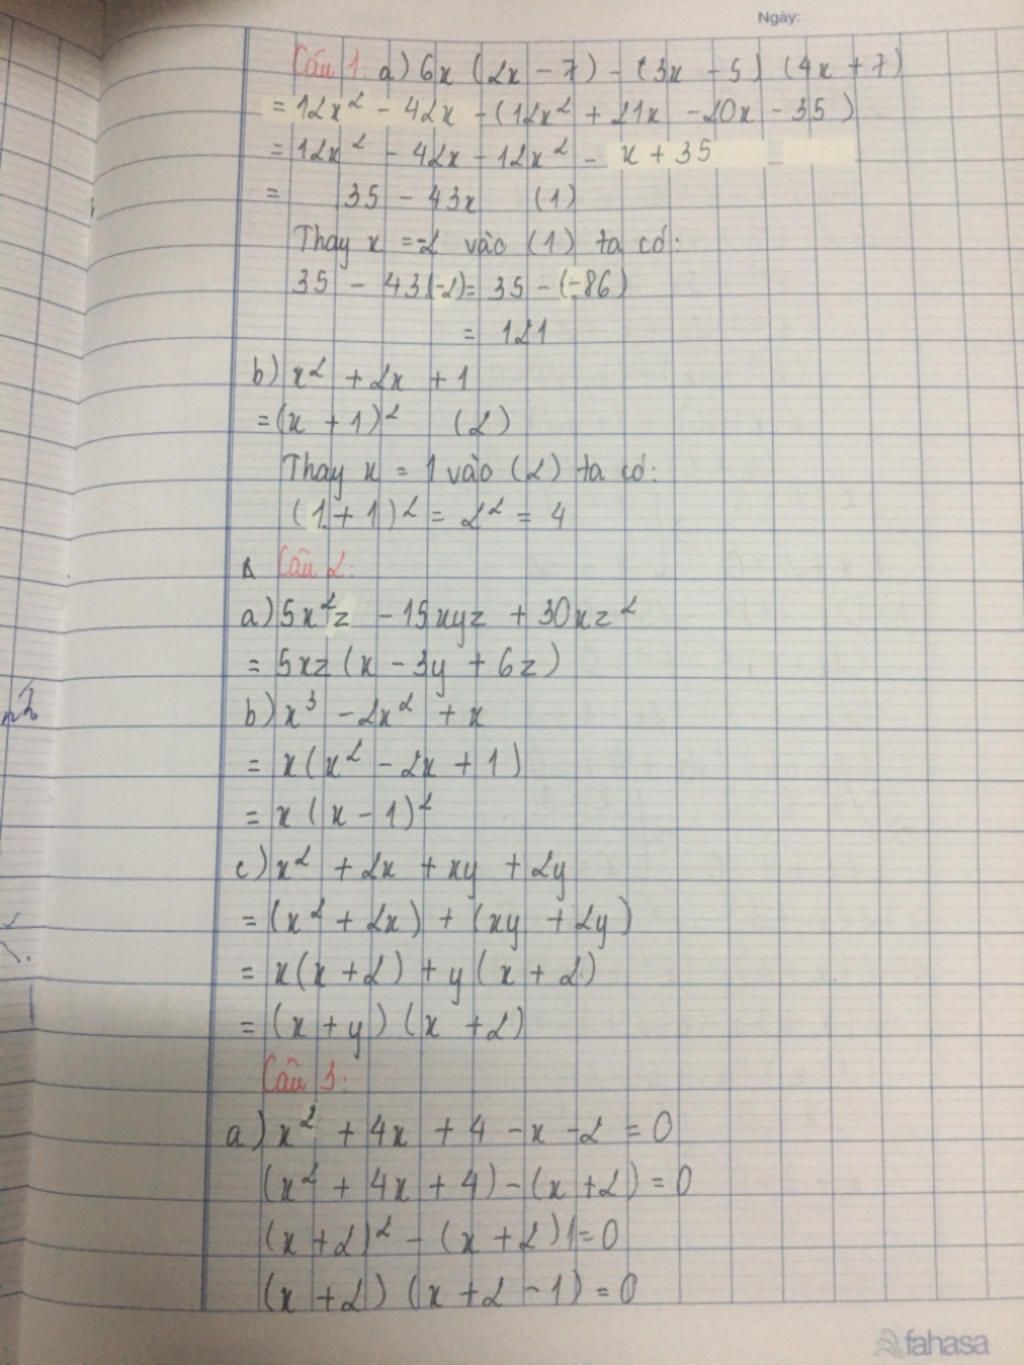 Ngày:
Câu 1: a) 6x (2x - 7) - (3x - 5) (4x + 7)
= 12x² - 42x - (12x² + 21x - 20x - 35)
= 12x² - 42x - 12x² - x + 35
= 35 - 43x (1)
Thay x = -2 vào (1) ta có:
35 - 43.(-2) = 35 - (-86)
= 121
b) x² + 2x + 1
= (x + 1)² (2)
Thay x = 1 vào (2) ta có:
(1 + 1)² = 2² = 4
Câu 2:
a) 5x²z - 15xyz + 30xz²
= 5xz (x - 3y + 6z)
b) x³ - 2x² + x
= x(x² - 2x + 1)
= x (x - 1)²
c) x² + 2x + xy + 2y
= (x² + 2x) + (xy + 2y)
= x(x + 2) + y (x + 2)
= (x + y) (x + 2)
Câu 3:
a) x² + 4x + 4 - x - 2 = 0
(x² + 4x + 4) - (x + 2) = 0
(x + 2)² - (x + 2) = 0
(x + 2) (x + 2 - 1) = 0
fahasa